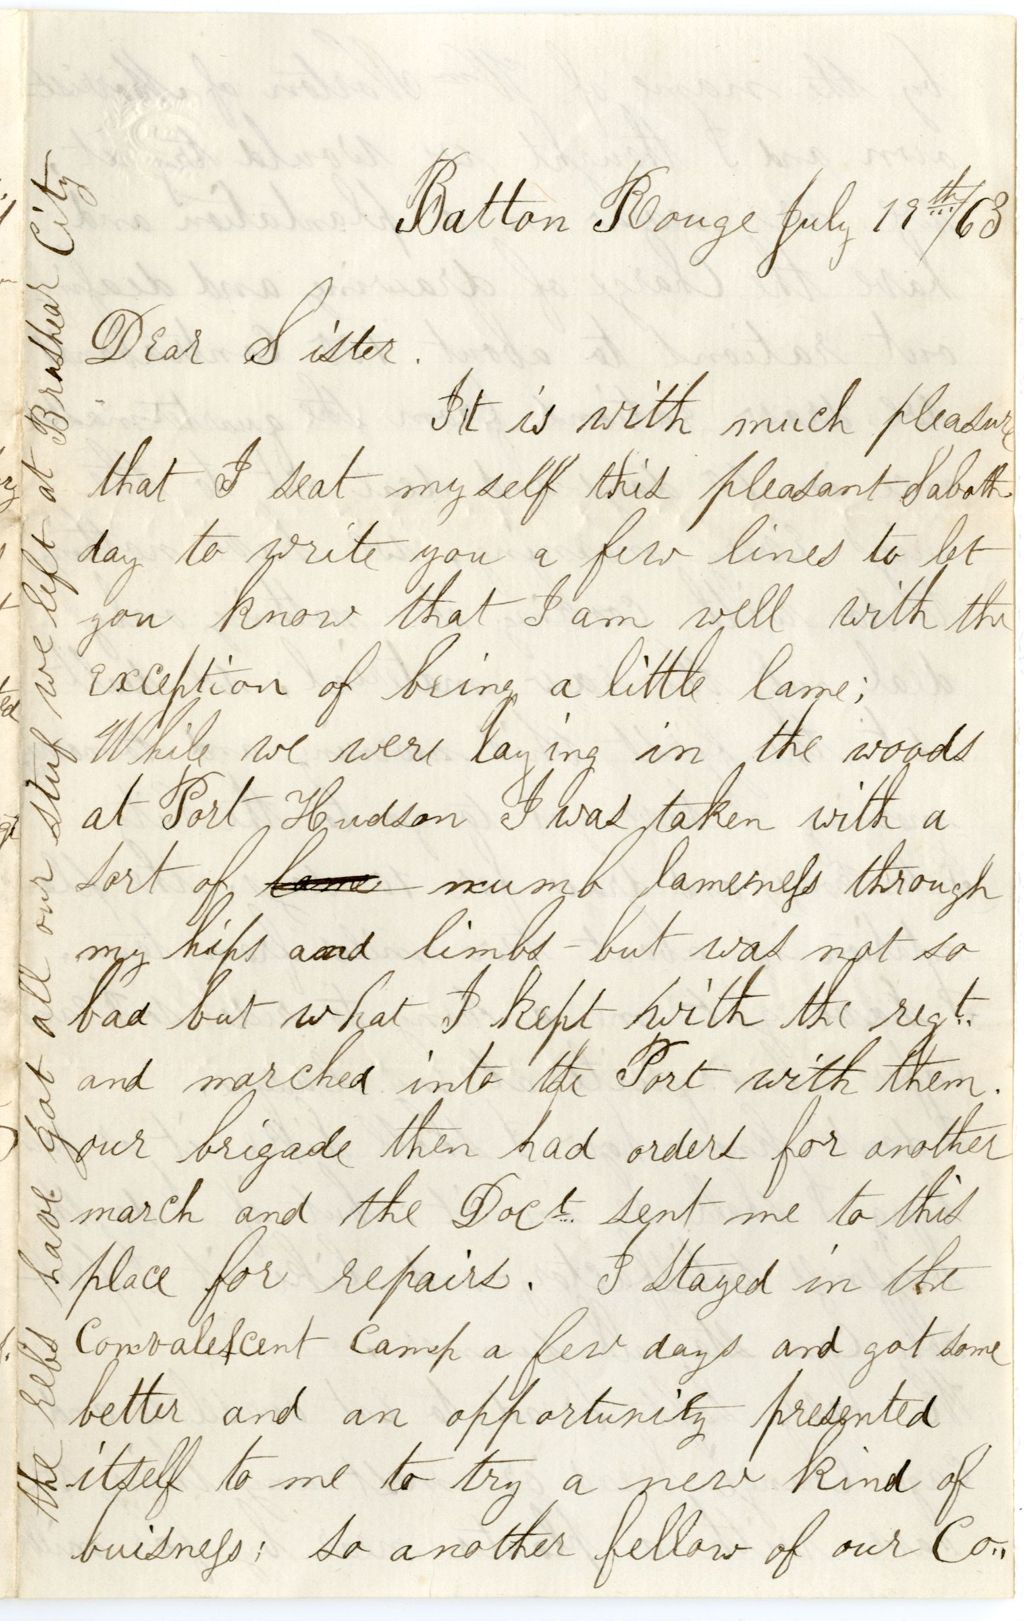 Batton Rouge July 19th/63
Dear Sister.
It is with much pleasure
that I seat myself this pleasant Sabath
day to write you a few lines to let
you know that I am well with the
exception of being a little lame;
While we were laying in the woods
at Port Hudson I was taken with a
sort of lame numb lameness through
my hips and limbs - but was not so
bad but what I kept with the regt.
and marched into the Port with them.
our brigade then had orders for another
march and the Doct. sent me to this
place for repairs. I stayed in the
Convalescent Camp a few days and got some
better and an opportunity presented
itself to me to try a new kind of
buisness; so another fellow of our Co..
the rebs have got all our stuf we left at Brashear City